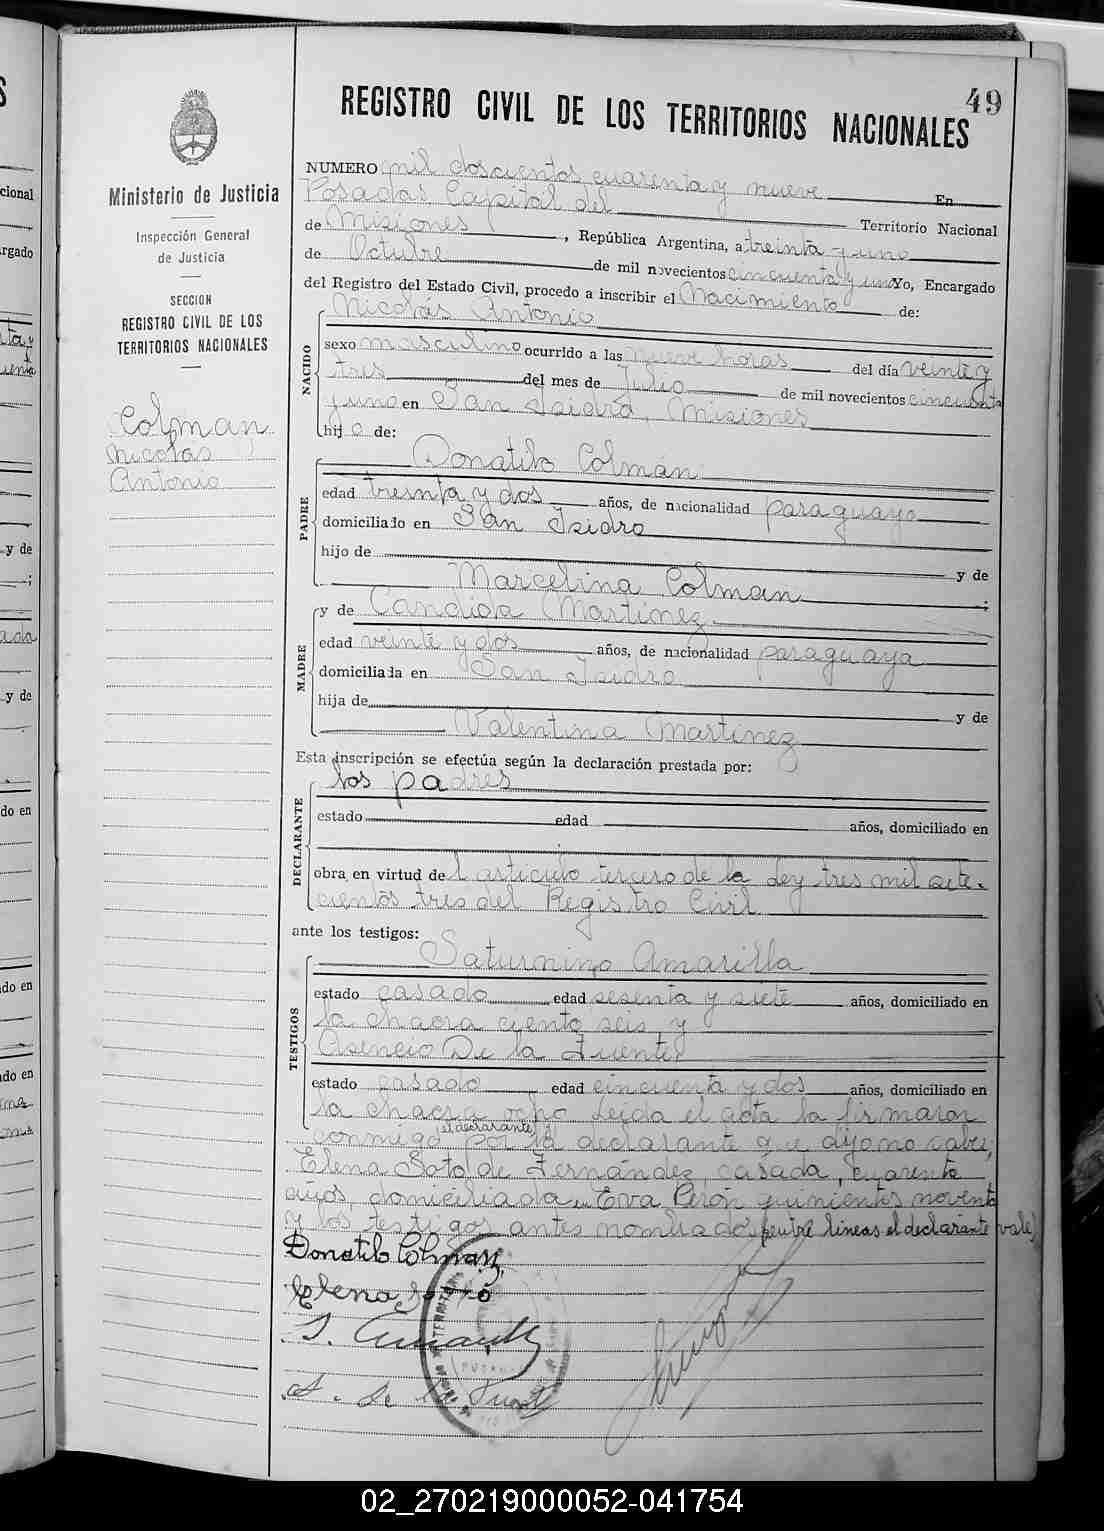 49
REGISTRO CIVIL DE LOS TERRITORIOS NACIONALES
Ministerio de Justicia
Inspección General
de Justicia
SECCION
REGISTRO CIVIL DE LOS
TERRITORIOS NACIONALES
Colman
Nicolas
Antonio
NUMERO mil doscientos cuarenta y nueve En
Posadas Capital del Territorio Nacional
de Misiones, República Argentina, a treinta y uno
de Octubre de mil novecientos cincuenta y uno Yo, Encargado
del Registro del Estado Civil, procedo a inscribir el Nacimiento de:
NACIDO
Nicolás Antonio
sexo masculino ocurrido a las nueve horas del día veinte y
tres del mes de Julio de mil novecientos cincuenta
y uno en San Isidro, Misiones
hijo de:
PADRE
Donatilo Colmán
edad treinta y dos años, de nacionalidad paraguayo
domiciliado en San Isidro
hijo de y de
Marcelina Colman ;
MADRE
y de Candida Martinez
edad veinte y dos años, de nacionalidad paraguaya
domiciliada en San Isidro
hija de y de
Valentina Martinez
Esta inscripción se efectúa según la declaración prestada por:
DECLARANTE
los padres
estado edad años, domiciliado en
obra en virtud del articulo tercero de la Ley tres mil sete-
cientos tres del Registro Civil
ante los testigos:
TESTIGOS
Saturnino Amarilla
estado casado edad sesenta y siete años, domiciliado en
la chacra ciento seis y
Asencio De la Fuente
estado casado edad cincuenta y dos años, domiciliado en
la chacra ocho Leida el acta la firmaron
conmigo el declarante por la declarante que dijo no saber,
Elena Soto de Fernández, casada, cuarenta
años, domiciliada Eva Perón quinientos noventa
y los testigos antes nombrados, entre lineas el declarante vale)
Donatilo Colman
Elena Soto
S. Amarilla
A. de la Fuente
02_270219000052-041754